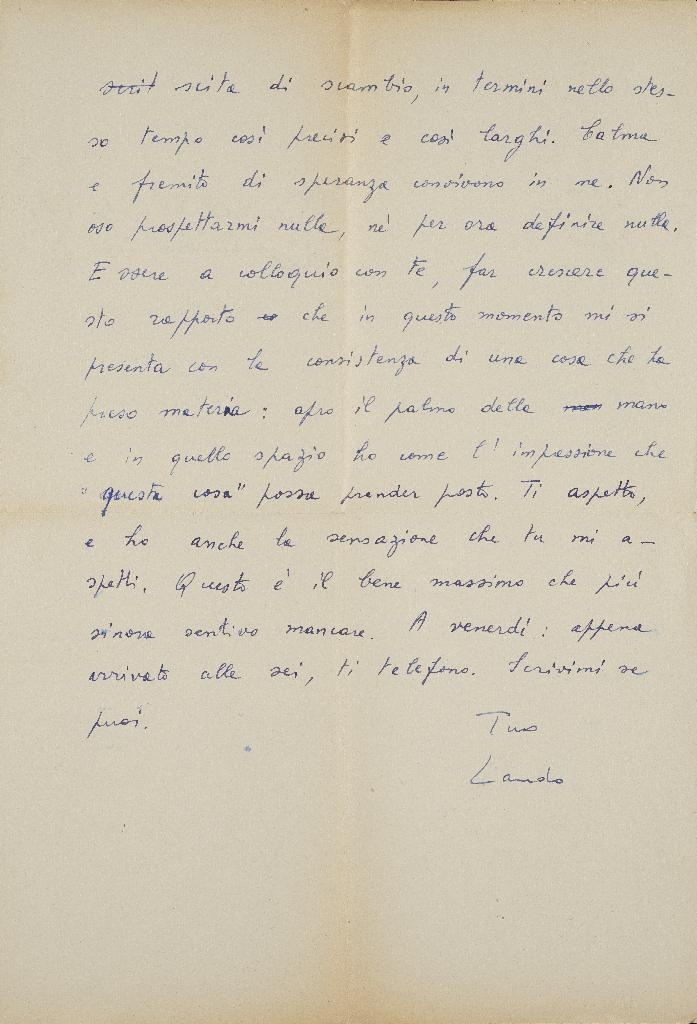 scit scita di scambio, in termini nello stes-
so tempo così precisi e così larghi. Calma
e fremito di speranza convivono in me. Non
oso prospettarmi nulla, né per ora definire nulla.
Essere a colloquio con te, far crescere que-
sto rapporto che in questo momento mi si
presenta con la consistenza di una cosa che ha
preso materia: apro il palmo della mano
e in quello spazio ho come l'impressione che
"questa cosa" possa prender posto. Ti aspetto,
e ho anche la sensazione che tu mi a-
spetti. Questo è il bene massimo che più
sinora sentivo mancare. A venerdì: appena
arrivato alle sei, ti telefono. Scrivimi se
puoi.
Tuo
Lando